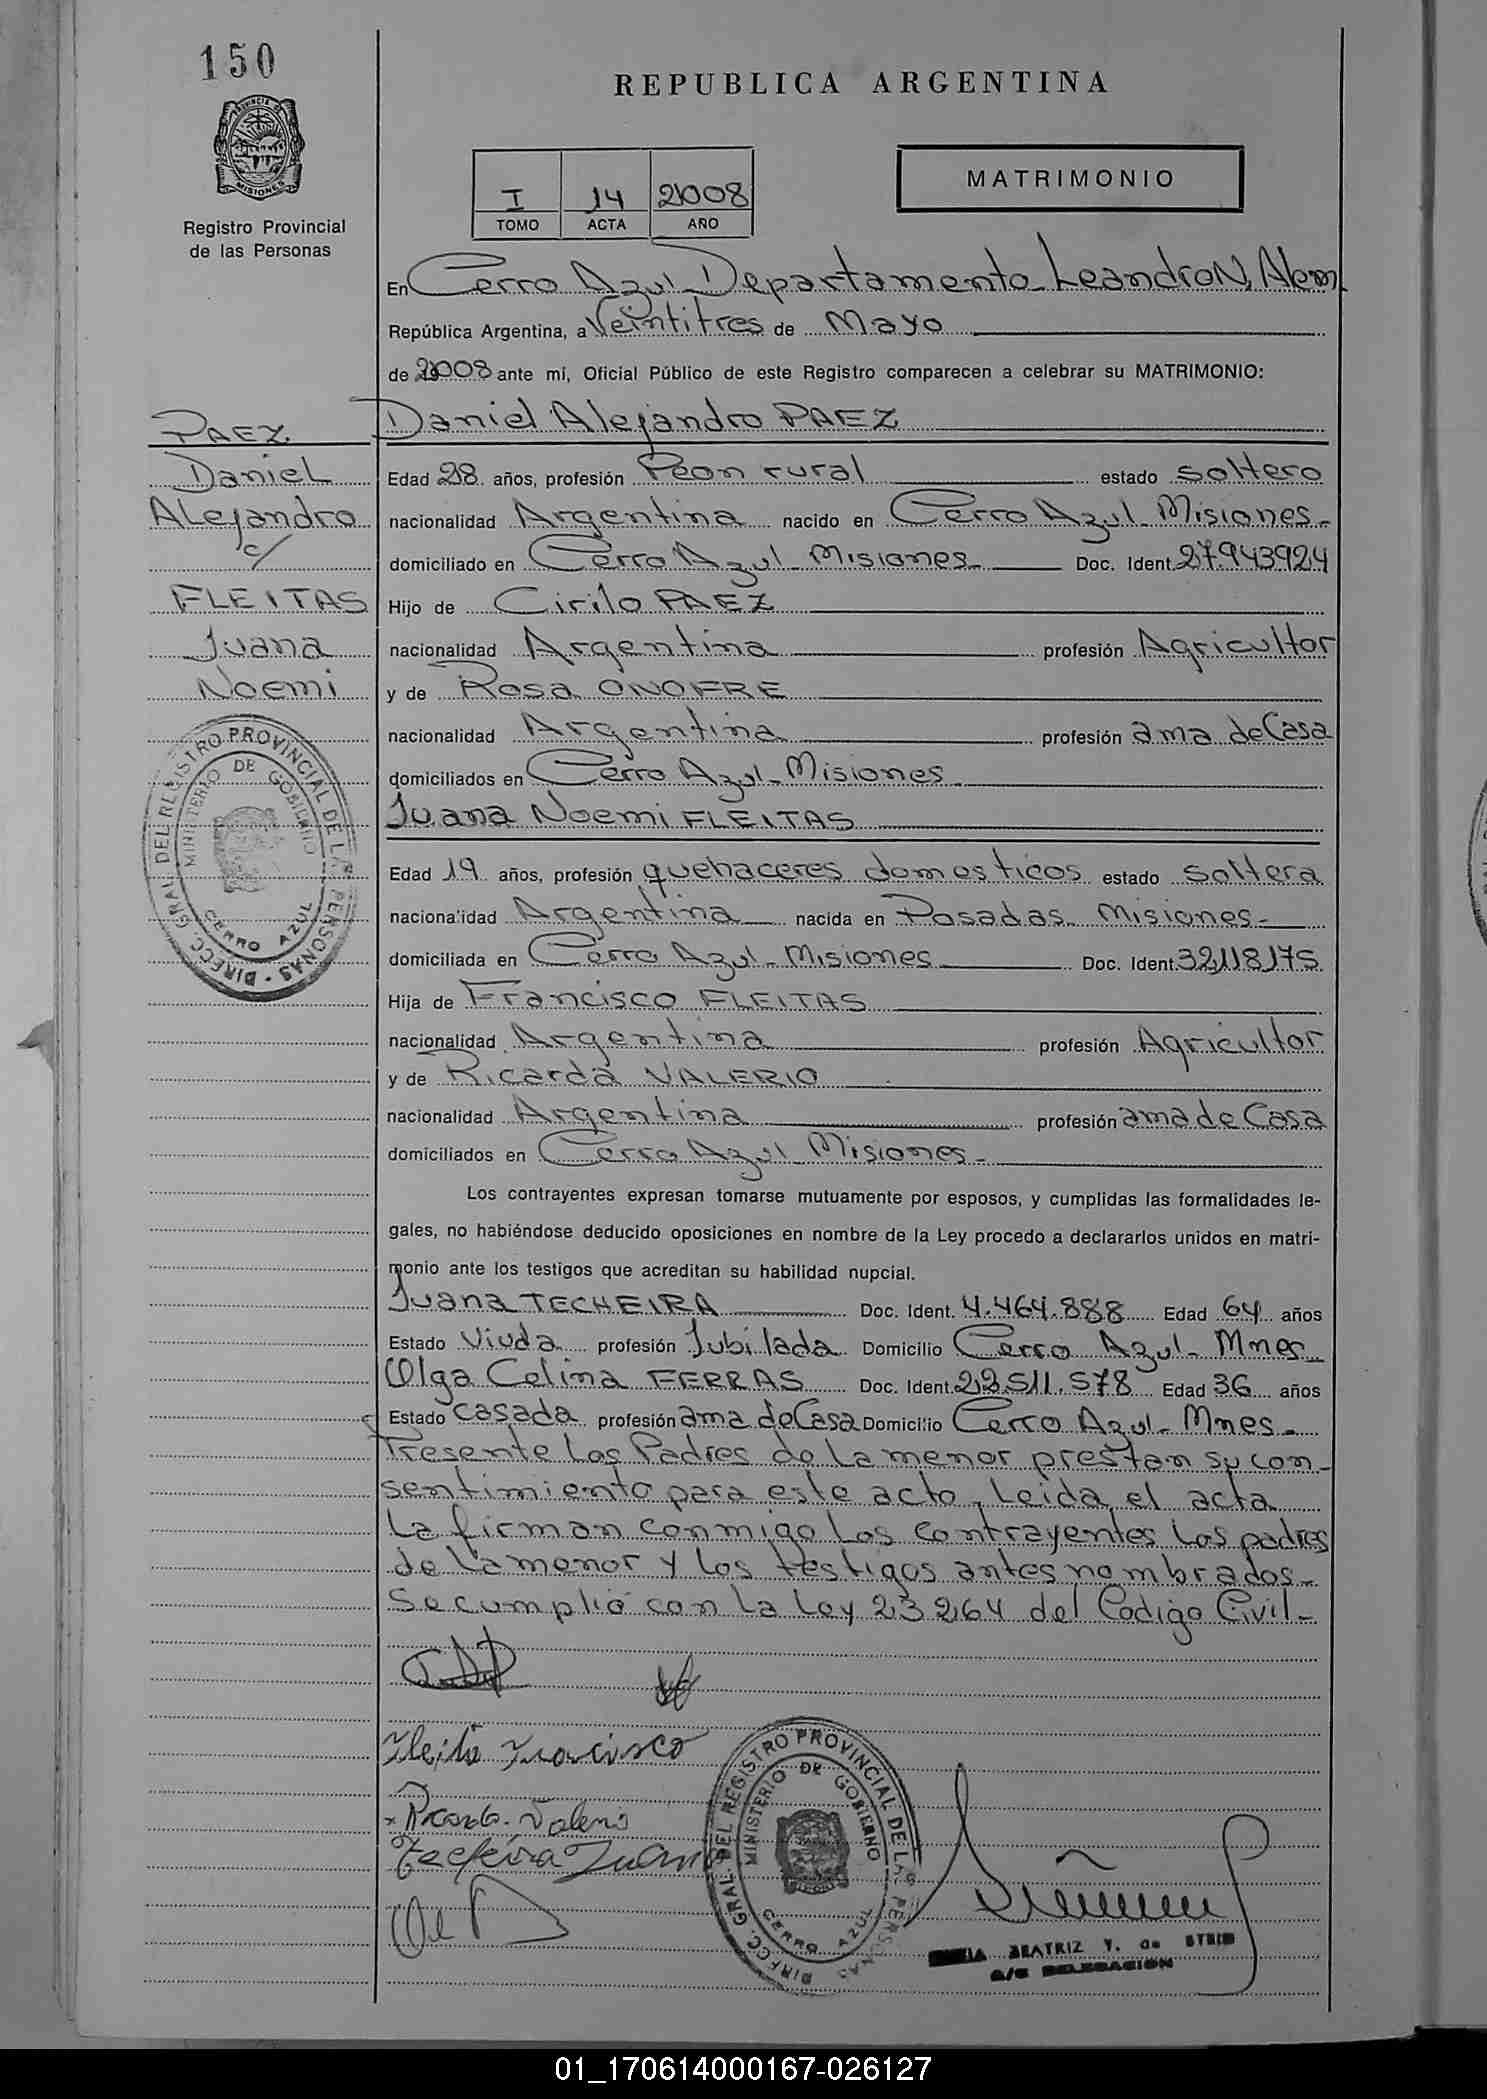 150
REPUBLICA ARGENTINA
PROVINCIA DE
MISIONES
Registro Provincial
de las Personas
I 14 2008
TOMO ACTA AÑO
MATRIMONIO
En Cerro Azul Departamento Leandro N, Alem
República Argentina, a Veintitres de Mayo
de 2008 ante mí, Oficial Público de este Registro comparecen a celebrar su MATRIMONIO:
Daniel Alejandro PAEZ
PAEZ
Daniel
Alejandro
c/
FLEITAS
Juana
Noemi
Edad 28 años, profesión Peon rural estado soltero
nacionalidad Argentina nacido en Cerro Azul Misiones-
domiciliado en Cerro Azul Misiones Doc. Ident. 27.943.924
Hijo de Cirilo PAEZ
nacionalidad Argentina profesión Agricultor
y de Rosa ONOFRE
nacionalidad Argentina profesión ama de Casa
domiciliados en Cerro Azul- Misiones
Juana Noemi FLEITAS
DIRECC. GRAL. DEL REGISTRO PROVINCIAL DE LAS PERSONAS
MINISTERIO DE GOBIERNO
CERRO AZUL
Edad 19 años, profesión quehaceres domesticos estado soltera
nacionalidad Argentina nacida en Posadas Misiones-
domiciliada en Cerro Azul- Misiones Doc. Ident. 32.118.175
Hija de Francisco FLEITAS
nacionalidad Argentina profesión Agricultor
y de Ricarda VALERIO
nacionalidad Argentina profesión ama de Casa
domiciliados en Cerro Azul Misiones-
Los contrayentes expresan tomarse mutuamente por esposos, y cumplidas las formalidades le-
gales, no habiéndose deducido oposiciones en nombre de la Ley procedo a declararlos unidos en matri-
monio ante los testigos que acreditan su habilidad nupcial.
Juana TECHEIRA Doc. Ident. 4.464.888 Edad 64 años
Estado Viuda profesión Jubilada Domicilio Cerro Azul- Mnes
Olga Celina FERRAS Doc. Ident. 22.511.578 Edad 36 años
Estado casada profesión ama de Casa Domicilio Cerro Azul- Mnes-
Presente los Padres de la menor prestan su con-
sentimiento para este acto, Leida el acta
la firman conmigo los contrayentes los padres
de la menor y los testigos antes nombrados-
Se cumplio con la ley 23264 del Codigo Civil-
Fleita Francisco
Ricarda Valerio
Techeira Juana
DIRECC. GRAL. DEL REGISTRO PROVINCIAL DE LAS PERSONAS
MINISTERIO DE GOBIERNO
CERRO AZUL
BEATRIZ Y. de
A/C DELEGACION
01_170614000167-026127